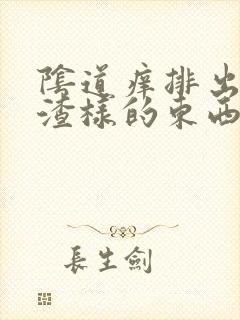 陰道痒排出
渣樣的東西
長生劍